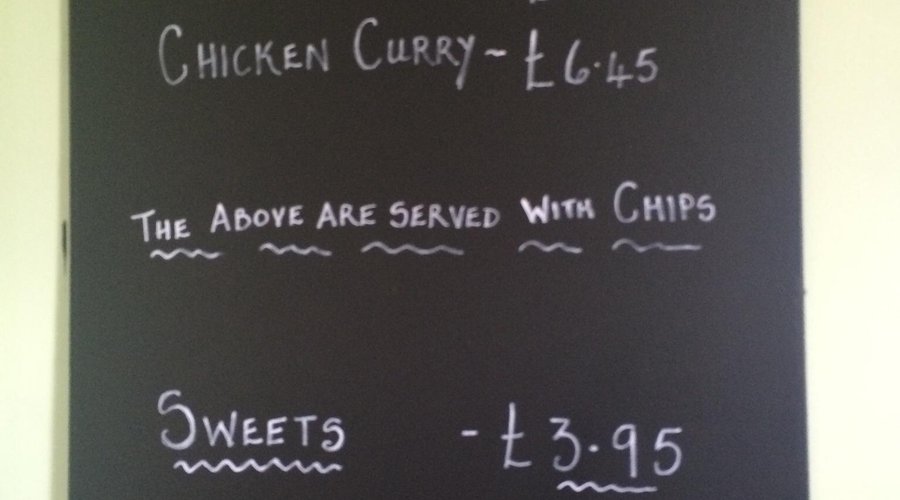 CHICKEN CURRY - £6.45
THE ABOVE ARE SERVED WITH CHIPS
SWEETS - £3.95